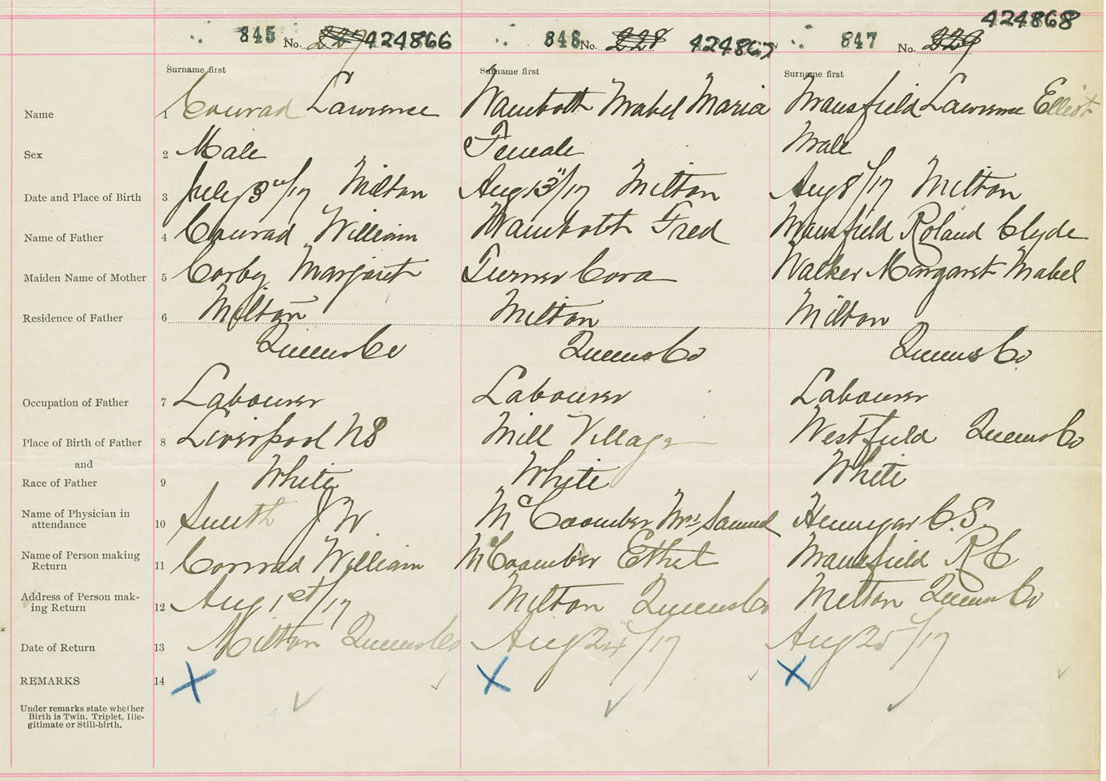 845 No. 227 424866 846 No. 228 424867 847 No. 229 424868
Surname first Surname first Surname first
Name 1 Conrad Lawrence Wamboth Mabel Maria Mansfield Lawrence Elliot
Sex 2 Male Female Male
Date and Place of Birth 3 July 3"/17 Milton Aug 13"/17 Milton Aug 8"/17 Milton
Name of Father 4 Conrad William Wamboth Fred Mansfield Roland Clyde
Maiden Name of Mother 5 Corby Margaret Turner Cora Walker Margaret Mabel
Residence of Father 6 Milton Milton Milton
Queens Co Queens Co Queens Co
Occupation of Father 7 Labourer Labourer Labourer
Place of Birth of Father 8 Liverpool NS Mill Village Westfield Queens Co
and
Race of Father 9 White White White
Name of Physician in
attendance 10 Smith J W McCoomber Mrs Samuel Hennigar C. S.
Name of Person making
Return 11 Conrad William McCoomber Ethel Mansfield R C
Address of Person mak-
ing Return 12 Aug 1st/17 Milton Queens Co Milton Queens Co
Date of Return 13 Milton Queens Co Aug 24/17 Aug 25/17
REMARKS 14 X X X
Under remarks state whether
Birth is Twin, Triplet, Ille-
gitimate or Still-birth.